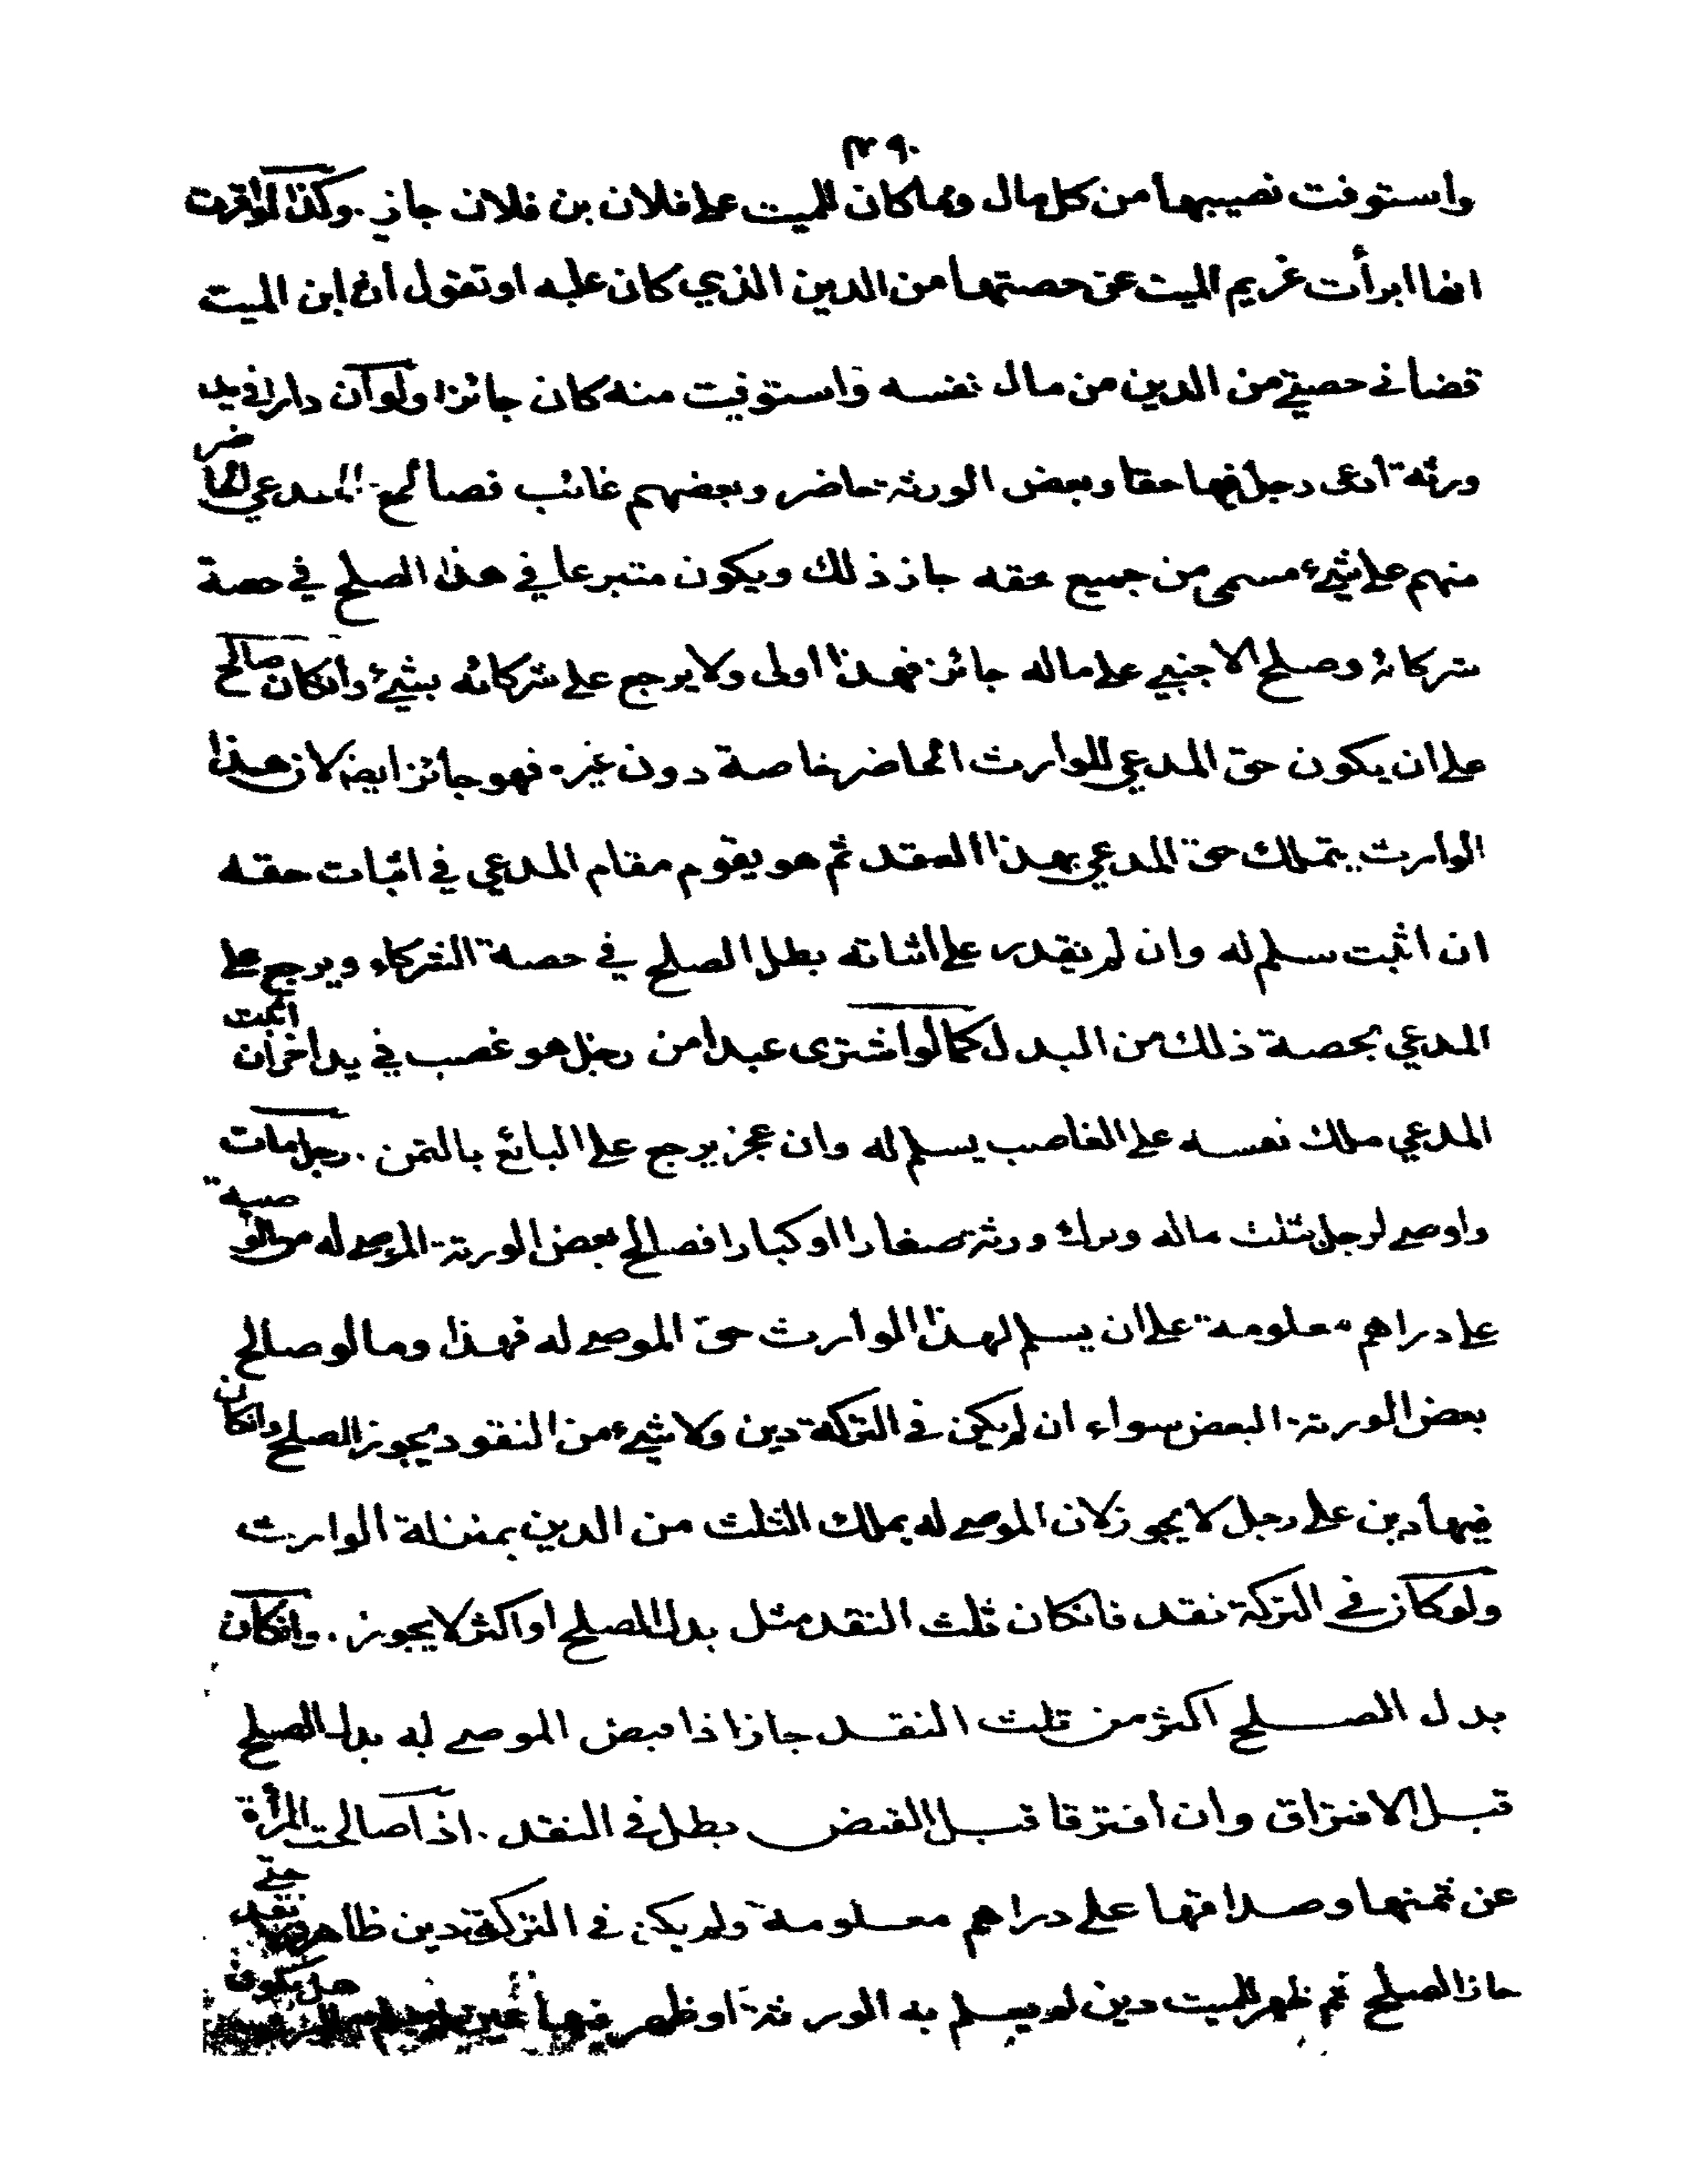 ٢٩٠
واستوفت نصيبها من كل مال ومما كان للميت على فلان بن فلان جاز. وكذا لو اقرت
انها ابرأت غريم الميت عن حصتها من الدين الذي كان عليه او تقول ان ابن الميت
قضاني حصتي من الدين من مال نفسه واستوفيت منه كان جائزا ولو ان دارا في يد
ورثة ادعى رجل فيها حقا وبعض الورثة حاضر وبعضهم غائب فصالح المدعي الحاضر
منهم على شيء مسمى من جميع حقه جاز ذلك ويكون متبرعا في هذا الصلح في حصة
شركائه وصلح الاجنبي على ماله جائز فهذا اولى ولا يرجع على شركائه بشيء وانكان صالح
على ان يكون حق المدعي للوارث الحاضر خاصة دون غيره فهو جائز ايضا لان هذا
الوارث يتملك حق المدعي بهذا العقد ثم هو يقوم مقام المدعي في اثبات حقه
ان اثبت سلم له وان لم يقدر على اثباته بطل الصلح في حصة الشركاء ويرجع على
المدعي بحصة ذلك من البدل كما لو اشترى عبدا من رجل هو غصب في يد اخر ان اثبت
المدعي ملك نفسه على الغاصب يسلم له وان عجز يرجع على البائع بالثمن. رجل مات
واوصى لرجل بثلث ماله وترك ورثة صغارا او كبارا فصالح بعض الورثة الموصى له من الوصية
على دراهم معلومة على ان يسلم لهذا الوارث حق الموصى له فهذا وما لو صالح
بعض الورثة البعض سواء ان لم يكن في التركة دين ولا شيء من النقود يجوز الصلح وانكان
فيها دين على رجل لا يجوز لان الموصى له يملك الثلث من الدين بمنزلة الوارث
ولو كان في التركة نقد فانكان ثلث النقد مثل بدل الصلح او اكثر لا يجوز. وانكان
بدل الصلح اكثر من ثلث النقد جاز اذا قبض الموصى له بدل الصلح
قبل الافتراق وان افترقا قبل القبض بطل في النقد. اذا صالحت المرأة
عن ثمنها وصداقها على دراهم معلومة ولم يكن في التركة دين ظاهر نقد حتى
جاز الصلح ثم ظهر للميت دين لم يعلم به الورثة او ظهر فيها عين هل يكون